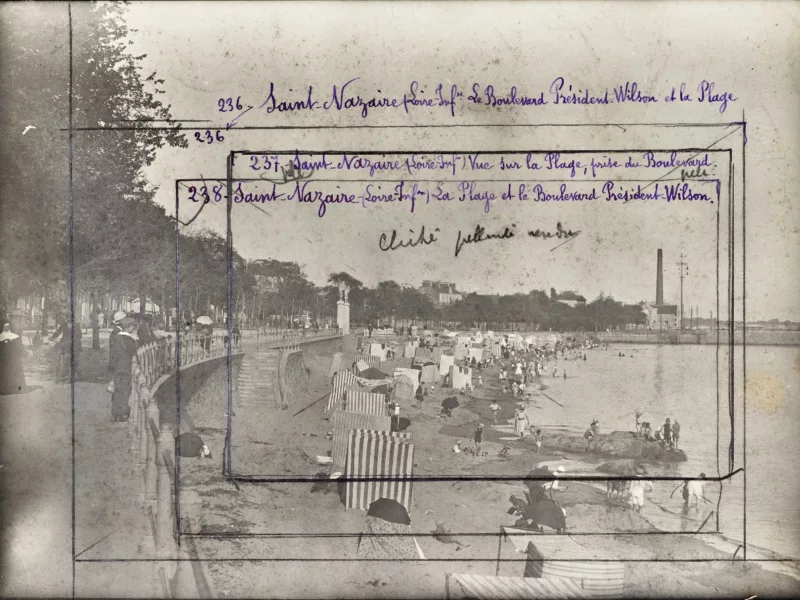 236 - Saint-Nazaire (Loire-Infre) Le Boulevard Président-Wilson et la Plage
236
237, Saint-Nazaire (Loire-Infre) Vue sur la Plage, prise du Boulevard.
238 - Saint-Nazaire - (Loire-Infre) La Plage et le Boulevard Président-Wilson.
Cliché